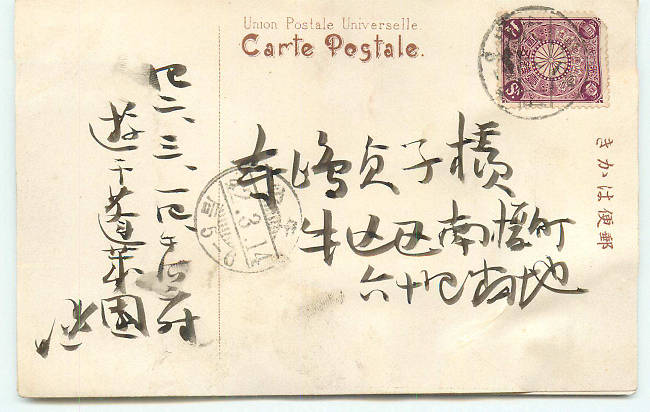 Union Postale Universelle.
Carte Postale.
きかは便郵
寺嶋貞子様
牛込区南榎町
六十四番地
四二、三、一四
遊于蓬莱園
42.3.14